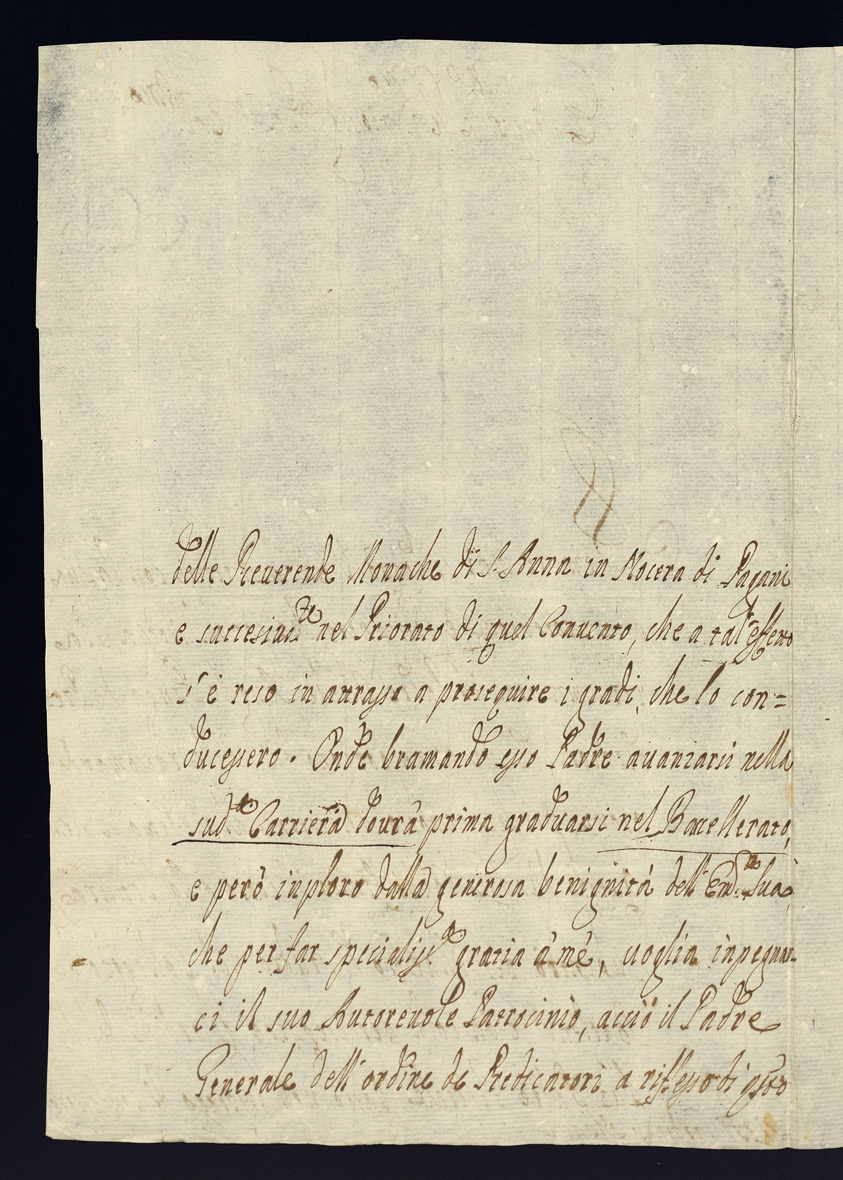 delle Reuerende Monache di S. Anna in Nocera di Pagani
e successiuate nel Priorato di quel Conuento, che a tal'effetto
s'è reso in attrasso a proseguire i gradi, che lo con=
ducessero. Onde bramando esso Padre auanzarsi nella
sud.ta Carriera dourà prima graduarsi nel Baccellerato,
e però inploro dalla generosa benignità dell'Em.za Sua,
che per far specialiss.a gratia à mè, uoglia inpegnar-
ci il suo Autoreuole Patrocinio, acciò il Padre
Generale dell'ordine de Predicatori a riflesso di esso